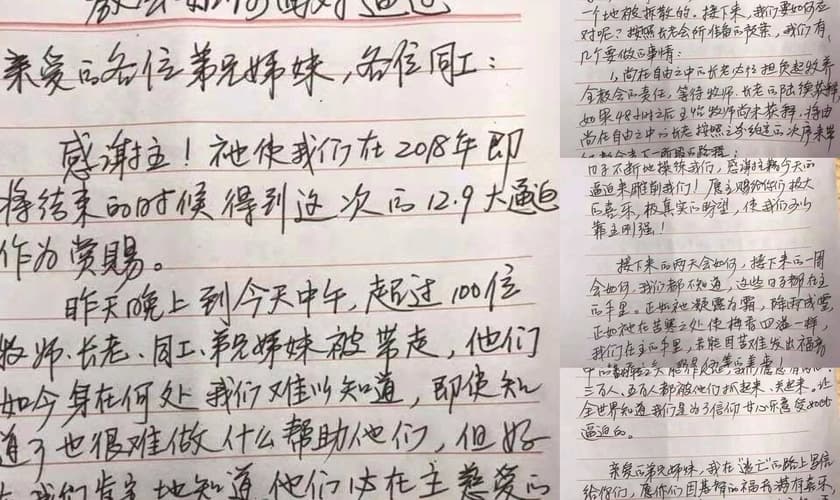 教会如何面对逼迫
亲爱的各位弟兄姊妹,各位同工:
感谢主!祂使我们在2018年即
将结束的时候得到这次的12.9大逼迫
作为赏赐。
昨天晚上到今天中午,超过100位
牧师、长老、同工、弟兄姊妹被带走,他们
如今身在何处我们难以知道,即使知
道了也很难做什么帮助他们,但好
我们肯定地知道他们必在主慈爱的
一个地被拆散的。接下来,我们要如何应
对呢?按照长老会所准备的预案,我们有
几个要做的事情:
1、尚在自由之中的长老必担负起牧养
全教会的责任,等待牧师、长老的陆续获释
如果48小时之后主任牧师尚未获释,将由
尚在自由之中的长老按照
日子不断地操练我们,感谢主藉今天的
逼迫来雕刻我们!愿主赐给你们极大
的喜乐,极真实的盼望,使我们可以
靠主刚强!
接下来的两天会如何,接下来的一周
会如何,我们都不知道,这些日子都在主
的手里。正如祂凝露为霜,降雨成雪,
正如祂在苦寒之处使梅香四溢一样,
我们在主的手里,若能因苦难发出福音
三万人、五万人都被他们抓起来、关起来。让
全世界知道我们是为了信仰甘心乐意受如此
逼迫的。
亲爱的弟兄姊妹,我在“逃亡”的路上写信
给你们,愿你们因基督的福音满有喜乐